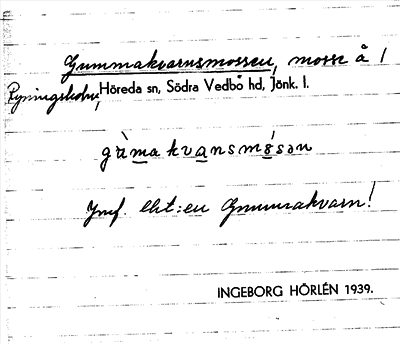 Gummakvarnsmossen, mosse å 1
Ryningsholm, Höreda sn, Södra Vedbo hd, Jönk. l.
gàmakvansmǿsən
Jmf. ent: en Gummakvarn!
INGEBORG HÖRLÉN 1939.